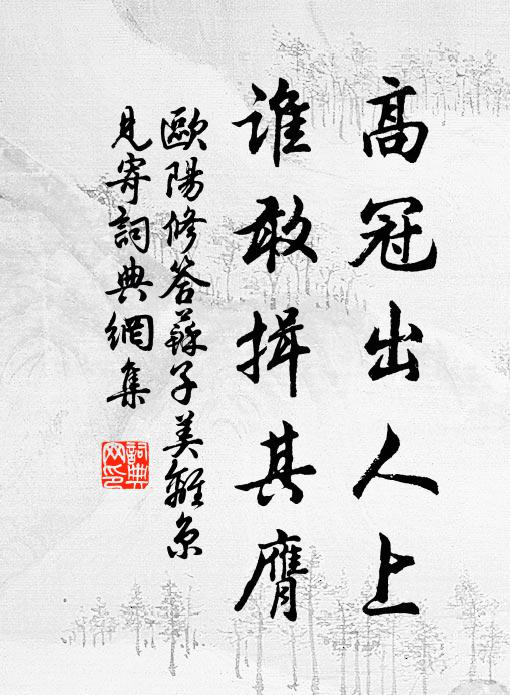 高冠出人上
誰敢揖其膺
歐陽修答蘇子美離京
見寄詞典網集
詞典
网印